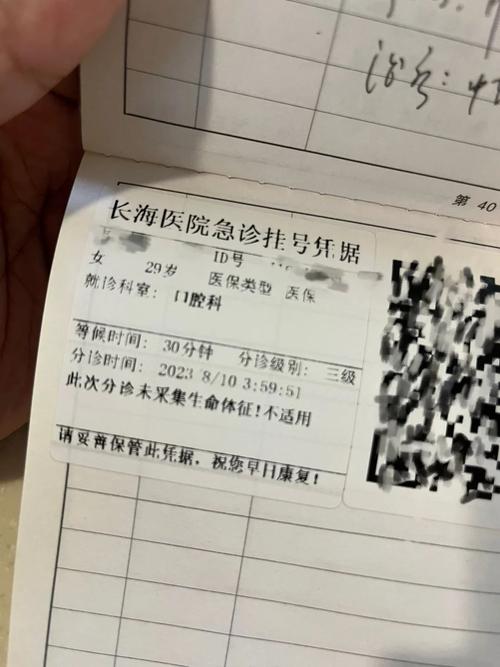 治
第 40
长海医院急诊挂号凭据
ID号
女 29岁 医保类型 医保
就诊科室: 口腔科
等候时间: 30分钟 分诊级别: 三级
分诊时间: 2023 8/10 3:59:51
此次分诊未采集生命体征!不适用
请妥善保管此凭据，祝您早日康复!